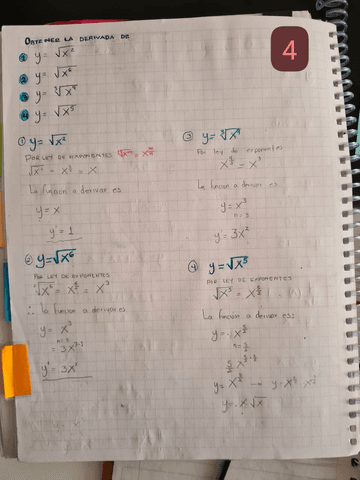 OBTENER LA DERIVADA DE
① y = √x²
② y = √x⁶
③
④ y = √x⁵
① y = √x²
POR LEY DE EXPONENTES
√x² = x = x
La funcion a derivar es
y = x
y' = 1
② y = √x⁶
POR LEY DE EXPONENTES
√x⁶ = x = x³
∴ la funcion a derivar es
y = x³
n = 3
= 3x³⁻¹
y' = 3x²
③
Por ley de exponentes
= x³
La funcion a derivar es
y = x³
n = 3
y = 3x²
④ y = √x⁵
POR LEY DE EXPONENTES
√x⁵ = x
La funcion a derivar es:
y =
y = x → y =
y = x √x
4